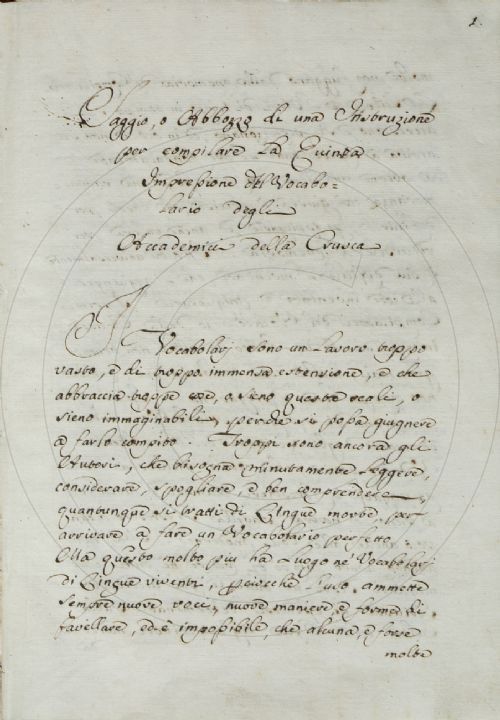 1.
Saggio, o Abbozzo di una Instruzione
per compilare la Quinta
Impressione del Vocabo=
lario degli
Accademici della Crusca
I Vocabolarj sono un lavoro troppo
vasto, e di troppo immensa estensione, e che
abbraccia troppe cose, o sieno queste reali, o
sieno immaginabili, perchè si possa giugnere
a farlo compito. Troppi sono ancora gli
Autori, che bisogna minutamente leggere,
considerare, spogliare, e ben comprendere,
quantunque si tratti di Lingue morte, per
arrivare a fare un Vocabolario perfetto.
Ma questo molto più ha luogo ne' Vocabolarj
di Lingue viventi, perciocchè ammette
sempre nuove voci, nuove maniere, e forme di
favellare, ed è impossibile, che alcuna, e forse
molte